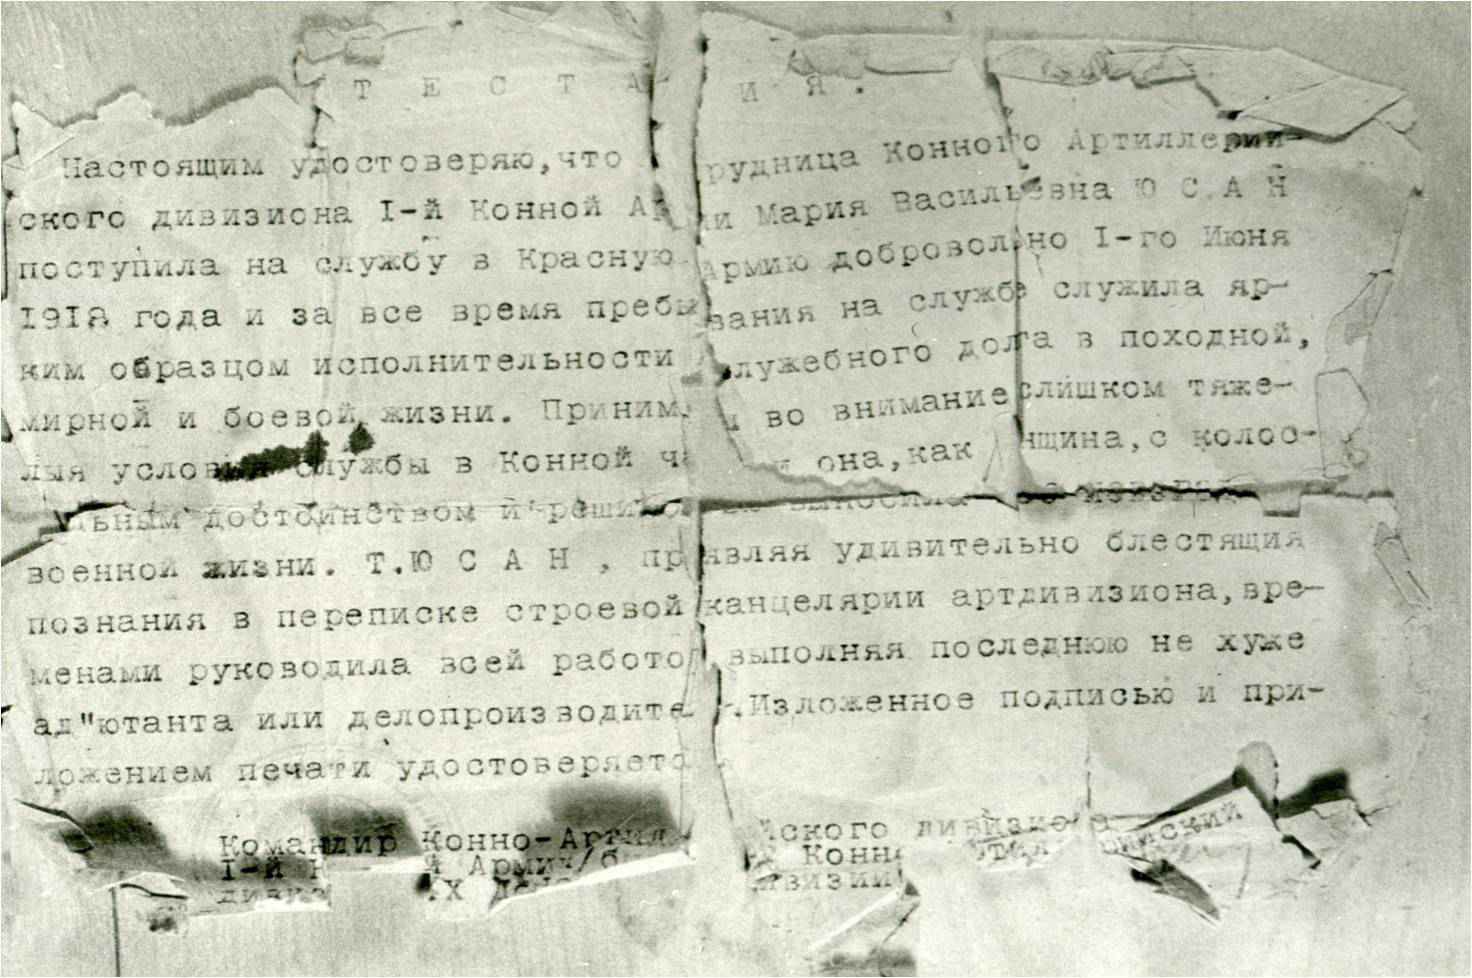 Т Е С Т А И Я .
Настоящим удостоверяю,что рудница Конного Артиллерий-
ского дивизиона I-й Конной Ар ии Мария Васильевна Ю С А Н
поступила на службу в Красную Армию добровольно I-го Июня
1918 года и за все время пребывания на службе служила яр-
ким образцом исполнительности служебного долга в походной,
мирной и боевой жизни. Приним и во внимание слишком тяже-
лыя условия службы в Конной ч и она,как нщина,с колос-
льным достоинством и реши выносила
военной жизни. Т.Ю С А Н , пр являя удивительно блестящия
познания в переписке строевой канцелярии артдивизиона,вре-
менами руководила всей работой,выполняя последнюю не хуже
ад"ютанта или делопроизводите .Изложенное подписью и при-
ложением печати удостоверяетс
Командир Конно-Артил йского дивизио а
I-й К й Армии/б Конн
диви ивизии